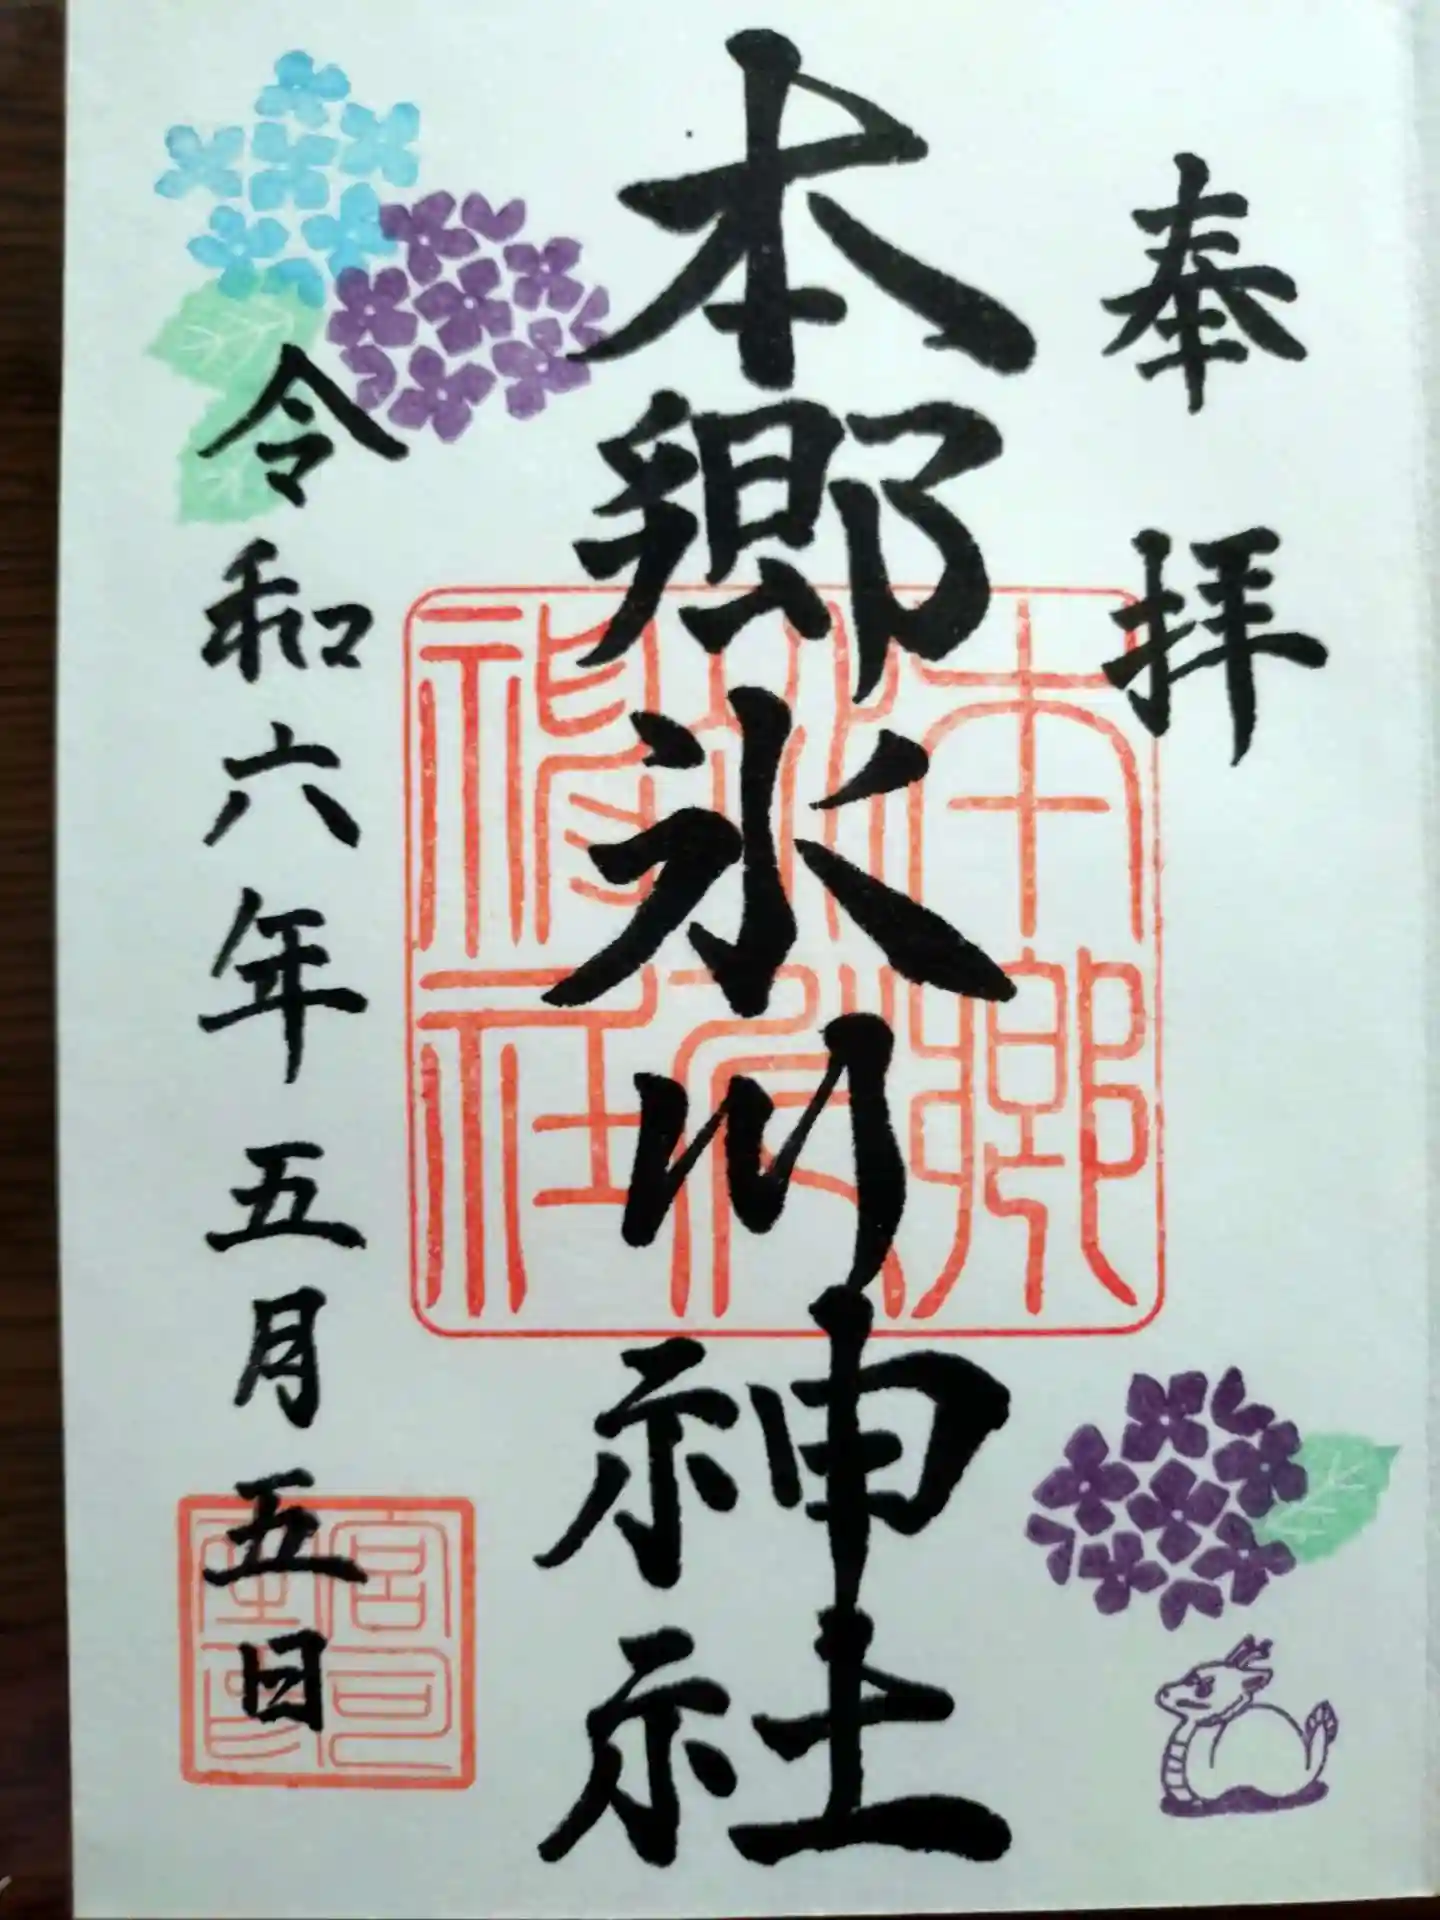 奉拝
本郷氷川神社
令和六年五月五日
本郷
氷川
神社